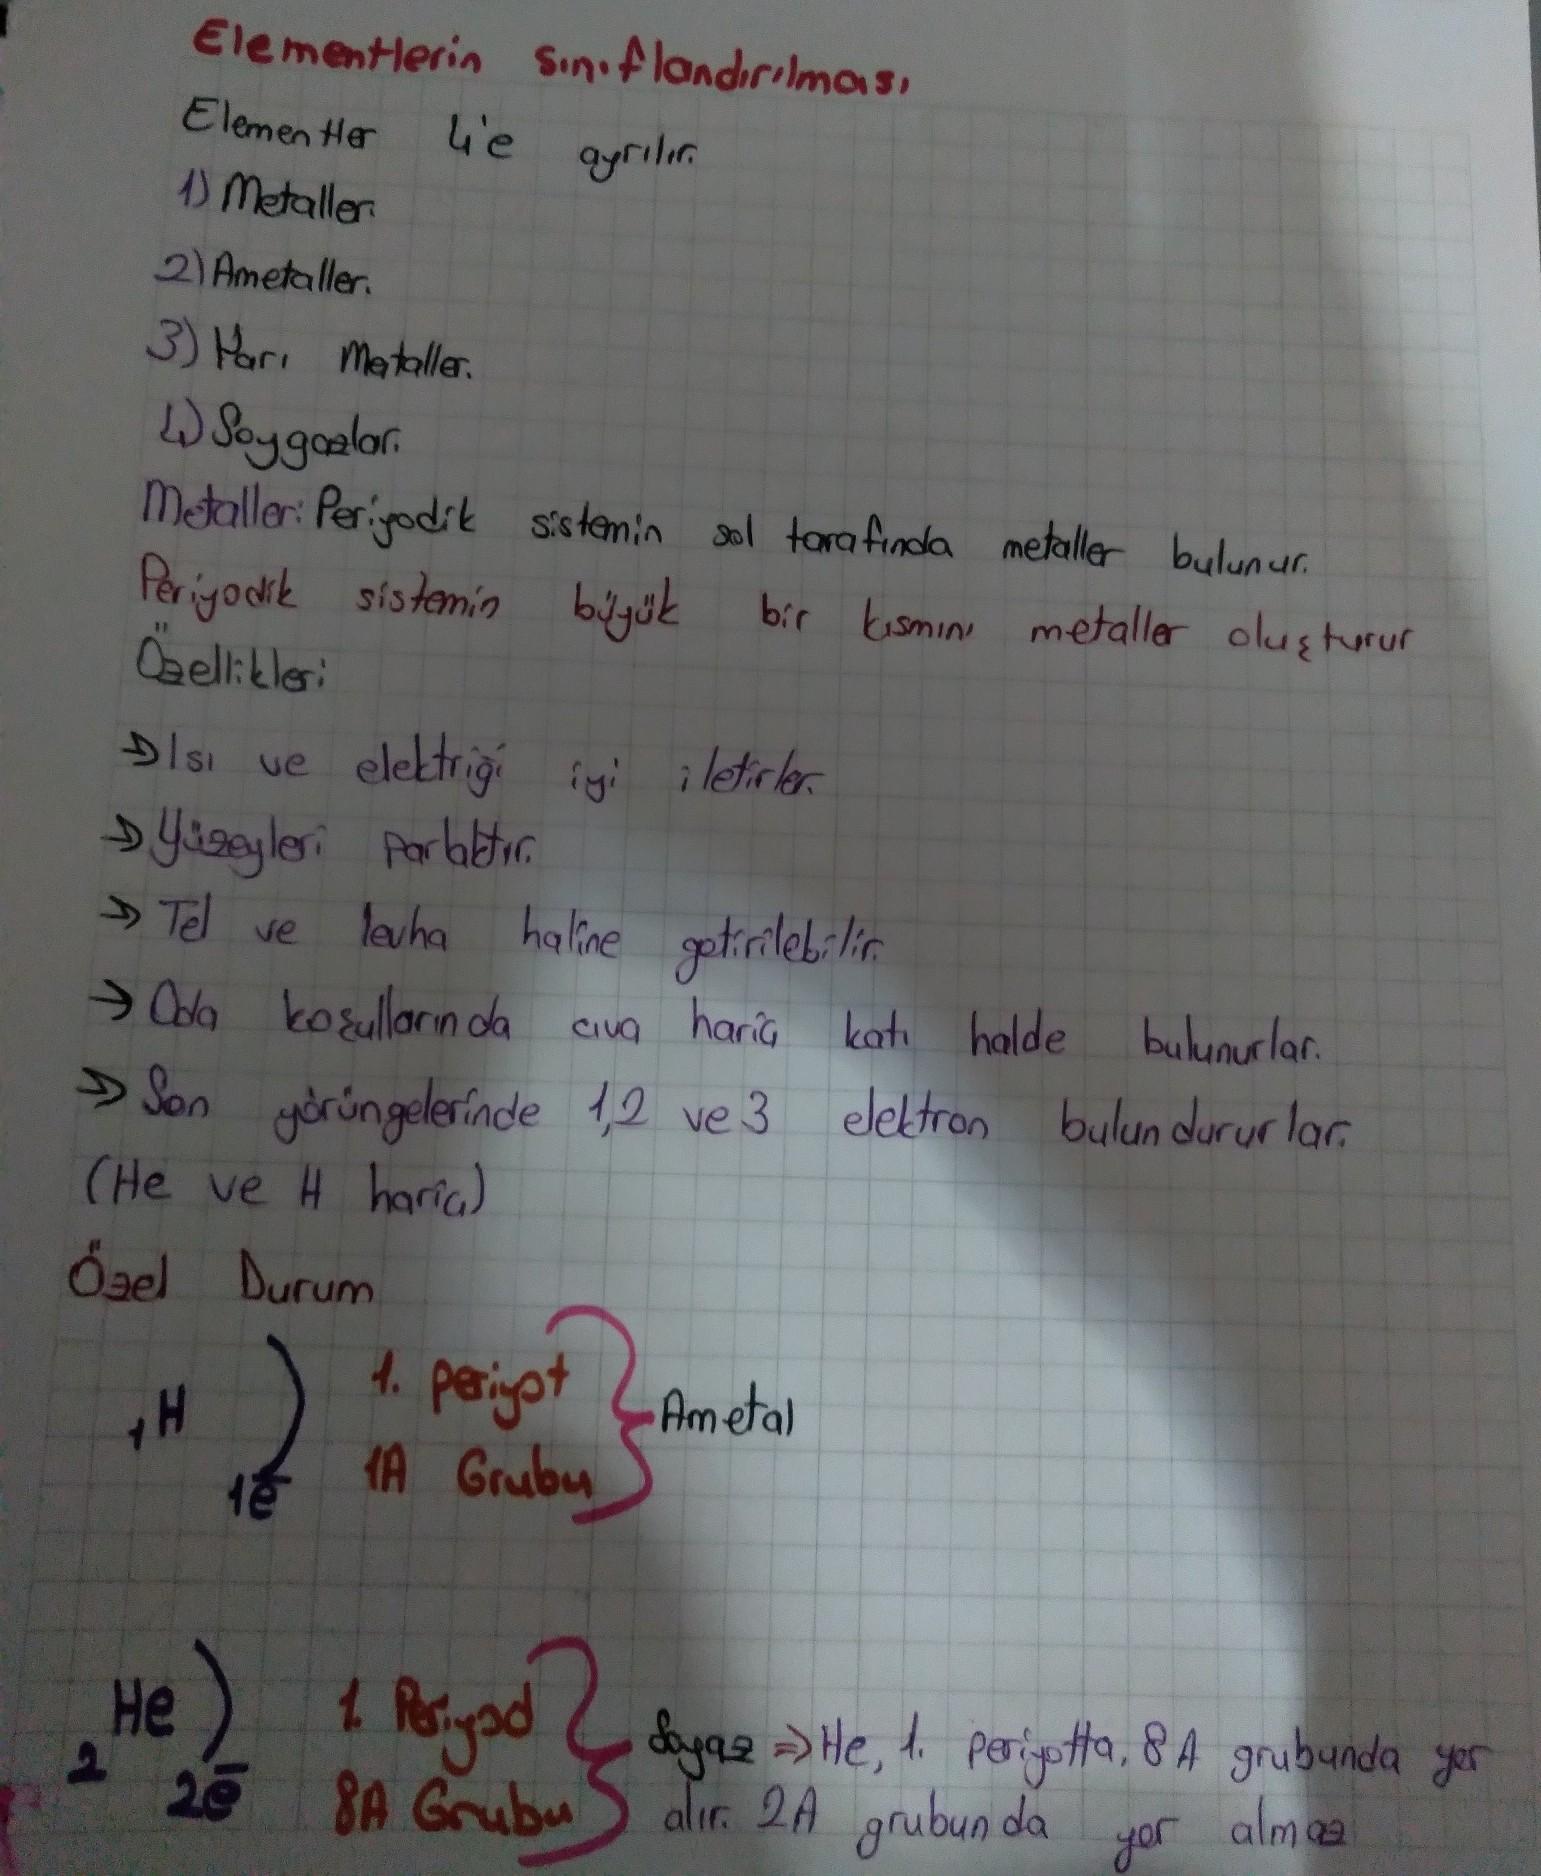 Elementlerin sınıflandırılması
Elementler 4'e ayrılır.
1) Metaller.
2) Ametaller.
3) Yarı Metaller.
4) Soygazlar.
Metaller: Periyodik sistemin sol tarafında metaller bulunur.
Periyodik sistemin büyük bir kısmını metaller oluşturur
Özellikleri
→ Isı ve elektriği iyi iletirler.
→ Yüzeyleri parlaktır.
→ Tel ve levha haline getirilebilir.
→ Oda koşullarında cıva hariç katı halde bulunurlar.
→ Son yörüngelerinde 1,2 ve 3 elektron bulundururlar.
(He ve H hariç)
Özel Durum
1. periyot
₁H ) Ametal
1e⁻ 1A Grubu
₂He ) 1. Periyod
2e⁻ 8A Grubu
Soygaz ⇒ He, 1. periyotta, 8A grubunda yer
alır. 2A grubunda yer almaz